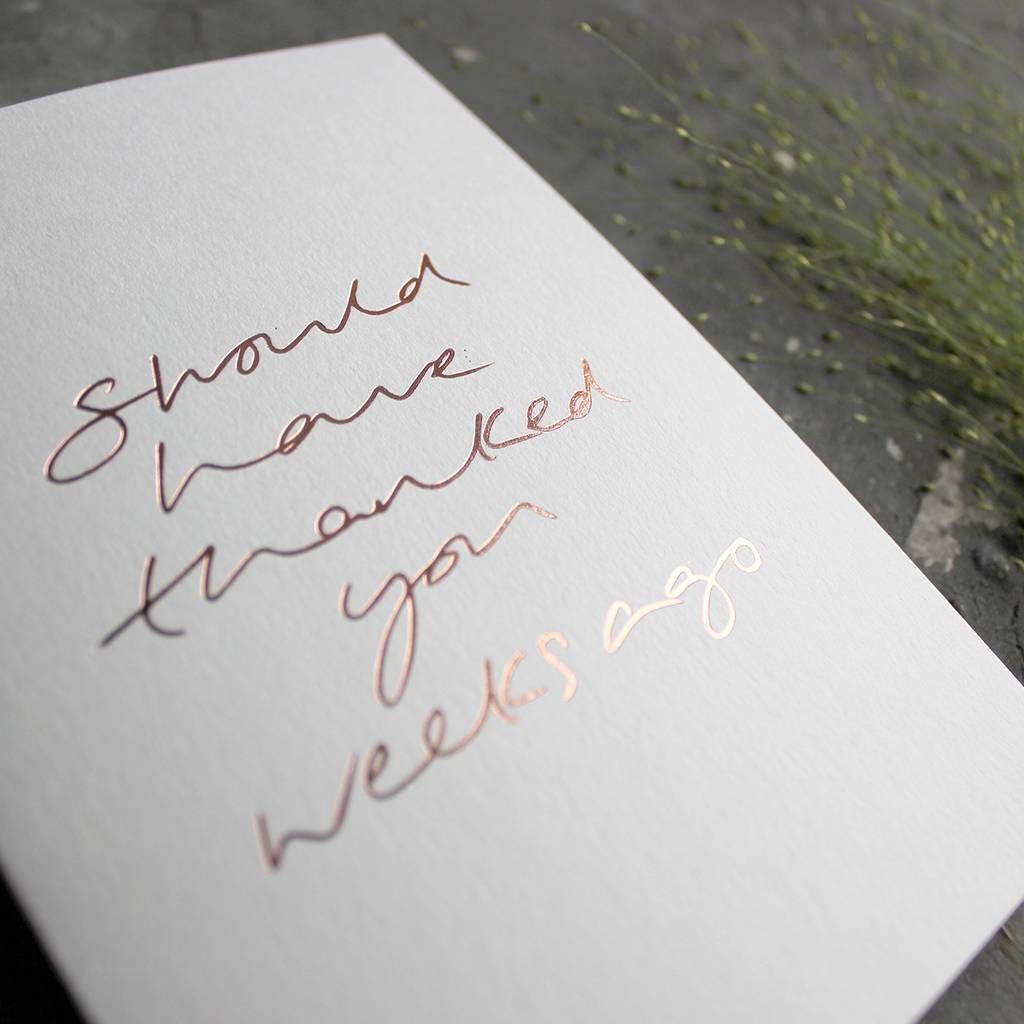 should
have
thanked
you
weeks ago